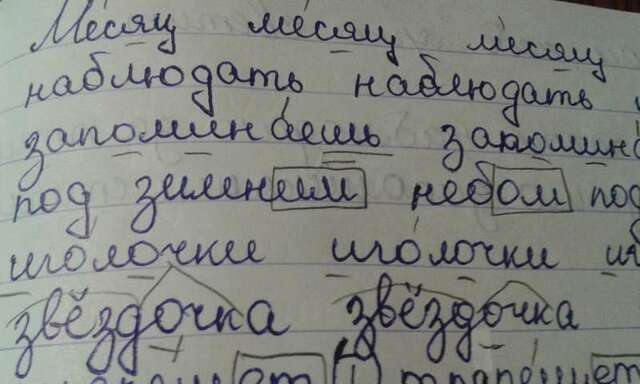 Месяц месяц месяц
наблюдать наблюдать
запоминаешь запомин
под зимним небом под
иголочки иголочки иг
звёздочка звёздочка
ет трапе